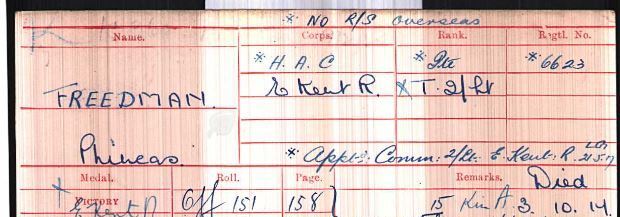 * No R/S overseas
Name. Corps. Rank. Regtl. No.
* H. A. C * Pte * 6623
FREEDMAN. E Kent R. X T. 2/Lt
Phineas. * Appt: Comm: 2/Lt. E. Kent: R. 21.5.17
Medal. Roll. Page. Remarks. Died
VICTORY Off 151 158
X E Kent R 15 K in A. 3. 10. 17.